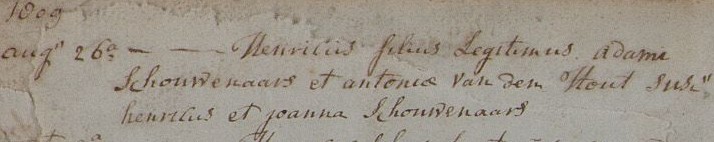 1809
augti 26a — — Henricus filius Legitimus adami
Schouwenaars et antoniæ van dem Hout susc:
henricus et joanna Schouwenaars